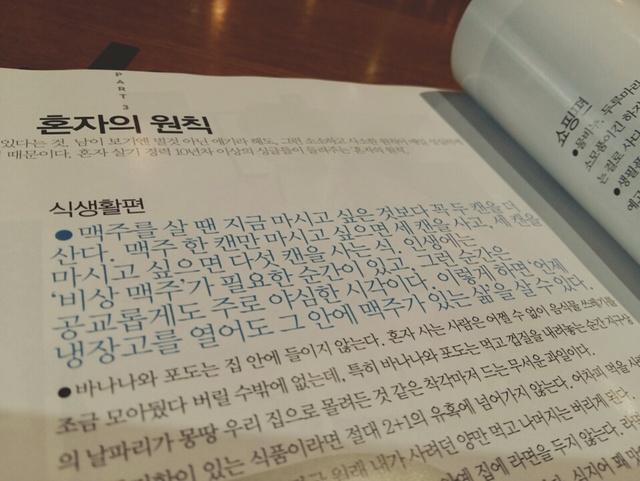 PART 3
혼자의 원칙
있다는 것. 남이 보기엔 별것 아닌 얘기라 해도, 그런 소소하고 사소한 원칙이
때문이다. 혼자 살기 경력 10년차 이상의 싱글들이 들려주는 혼자의 원칙.
식생활편
●맥주를 살 땐 지금 마시고 싶은 것보다 꼭 두 캔을 더
산다. 맥주 한 캔만 마시고 싶으면 세 캔을 사고, 세 캔을
마시고 싶으면 다섯 캔을 사는 식. 인생에는
‘비상 맥주’가 필요한 순간이 있고, 그런 순간은
공교롭게도 주로 야심한 시각이다. 이렇게 하면 ‘언제
냉장고를 열어도 그 안에 맥주가 있는 삶’을 살 수 있다.
●바나나와 포도는 집 안에 들이지 않는다. 혼자 사는 사람은 어쩔 수 없이 음식물 쓰레기를
조금 모아뒀다 버릴 수밖에 없는데, 특히 바나나와 포도는 먹고 껍질을 내려놓는 순간 지구상
의 날파리가 몽땅 우리 집으로 몰려든 것 같은 착각마저 드는 무서운 과일이다.
있는 식품이라면 절대 2+1의 유혹에 넘어가지 않는다. 어차피 먹을 사
원래 내가 사려던 양만 먹고 나머지는 버리게 된다.
집에 라면을 두지 않는다.
쇼핑편
두루마리
소모품이긴 하지
는 걸로 사